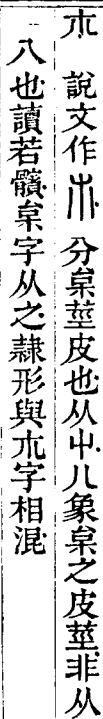 朩 說文作𣎳分枲莖皮也从屮儿象枲之皮莖非从
八也讀若髕枲字从之隸形與朩字相混